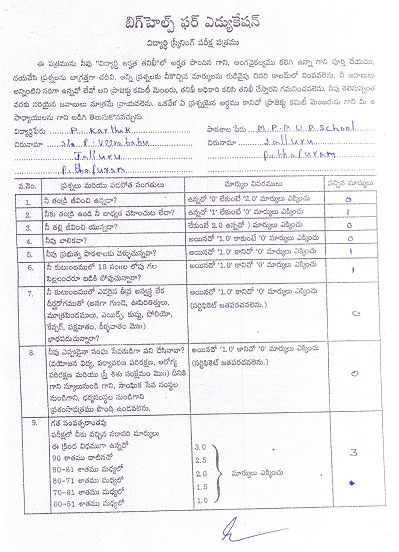 బిగ్‌హెల్ప్ ఫర్ ఎడ్యుకేషన్
విద్యార్థి స్క్రీనింగ్ పరీక్ష పత్రము
ఈ పత్రమును నీవు "విద్యార్థి అర్హత తనిఖీ"లో అర్హత పొందిన గాని, అంగవైకల్యము కలిగి ఉన్నా గాని పూర్తి చేయుము,
దయచేసి ప్రశ్నలను జాగ్రత్తగా చదివి, అన్ని ప్రశ్నలకు నీకొచ్చిన మార్కులను కుడివైపు చివరి కాలమ్‌లో నింపవలెను. నీ జవాబులు
అన్నింటిని సరిగా ఉన్నవో లేవో అని ప్రాజెక్టు కమిటీ మెంబరు, తనిఖీ అధికారి కలసి తనిఖీ చేస్తారని గమనించవలెను. నీవు తెలిసినన్నంత
వరకు సరియైన జవాబులు మాత్రమే వ్రాయవలెను. ఒకవేళ ఏ ప్రశ్నయైన అర్థము కానిచో ప్రాజెక్టు కమిటీ మెంబరును గాని మీ ఉ
పాధ్యాయులను గాని అడిగి తెలుసుకొనవచ్చును.
విద్యార్థిపేరు P. Karthik పాఠశాల పేరు M.P.P.U.P. School
చిరునామా S/o P. Veerababu చిరునామా Jalluru
Jalluru Pithapuram
Pithapuram
వ.నెం. ప్రశ్నలు మరియు సరిపోత సంగతులు మార్కుల వివరములు వచ్చిన మార్కులు
1. నీ తండ్రి జీవించి ఉన్నడా? ఉన్నచో '0' లేకుంటే '2.0' మార్కులు ఎక్కించు 0
2. నీకు తండ్రి ఉండి నీ బాధ్యత వహించుట లేదా? ఉన్నచో '1' లేకుంటే '0' మార్కులు ఎక్కించు 1
3. నీ తల్లి జీవించి యున్నదా? లేకుంటే 2.0 ఉన్నచో ) మార్కులు ఎక్కించు 0
4. నీవు బాలికవా? అయినచో '1.0' కాకుంటే '0' మార్కులు ఎక్కించు 0
5. నీవు ప్రభుత్వ పాఠశాలకు వెళ్ళుచున్నావా? అయినచో '1.0' కానిచో '0' మార్కులు ఎక్కించు 1
6. నీ కుటుంబములో 18 సం॥ల లోపు గల అయినచో '1.0' కానిచో '0' మార్కులు ఎక్కించు 1
పిల్లలందరూ బడికి పోవుచున్నారా?
7. నీ కుటుంబములో ఎవరైన తీవ్ర అస్వస్థత లేక అయినచో '1.0' కానిచో '0' మార్కులు ఎక్కించు 0
దీర్ఘరోగముతో (అనగా గుండె, ఊపిరితిత్తులు, (సర్టిఫికెట్ జతపరచవలెను.)
మూత్రపిండములు, ఎయిడ్స్, కుష్ఠు, పోలియో,
కేన్సర్, పక్షవాతం, దీర్ఘవాతం మొ॥)
బాధపడుచున్నారా?
8. నీవు ఎప్పుడైనా సంఘ సేవకుడిగా పని చేసినావా? అయినచో '1.0' కానిచో '0' మార్కులు ఎక్కించు 0
(వయోజన విద్య, పర్యావరణ పరిరక్షణ, ఆరోగ్య (సర్టిఫికెట్ జతపరచవలెను.)
పరిరక్షణ మరియు స్త్రీ శిశు సంక్షేమం మొ॥) దీనికి
గాని స్కూలునుండి గాని, సాంఘిక సేవ సంస్థల
నుండిగాని, ధర్మసంస్థల నుండిగాని
ప్రశంసాపత్రము పొంది ఉండవలెను.
9. గత సంవత్సరాంతపు
పరీక్షలో నీకు వచ్చిన సరాసరి మార్కులు
ఈ క్రింద విధముగా ఉన్నాచో 3.0
90 శాతము దాటినచో 2.5 3
90-81 శాతము మధ్యలో 2.0 మార్కులు ఎక్కించు
80-71 శాతము మధ్యలో 1.5
70-61 శాతము మధ్యలో 1.0
60-51 శాతము మధ్యలో